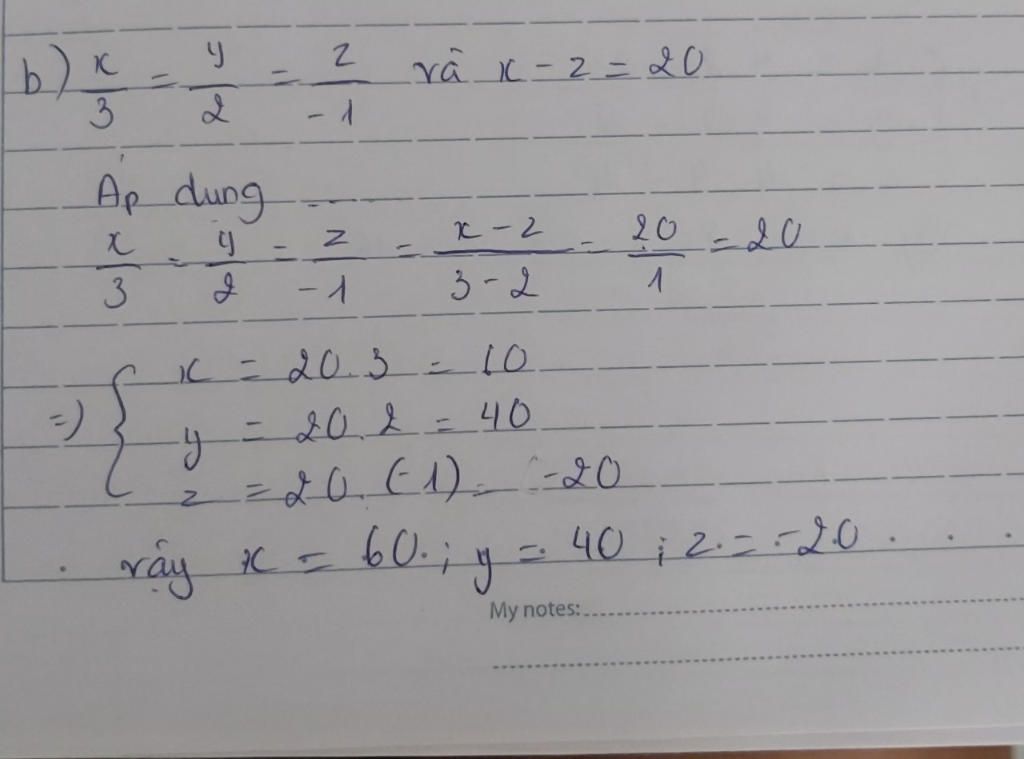 b) x/3 = y/2 = z/-1 và x - z = 20
Áp dụng ......
x/3 = y/2 = z/-1 = x-z/3-2 = 20/1 = 20
=> { x = 20.3 = 60
y = 20.2 = 40
z = 20.(-1) = -20
vậy x = 60 ; y = 40 ; z = -20
My notes: